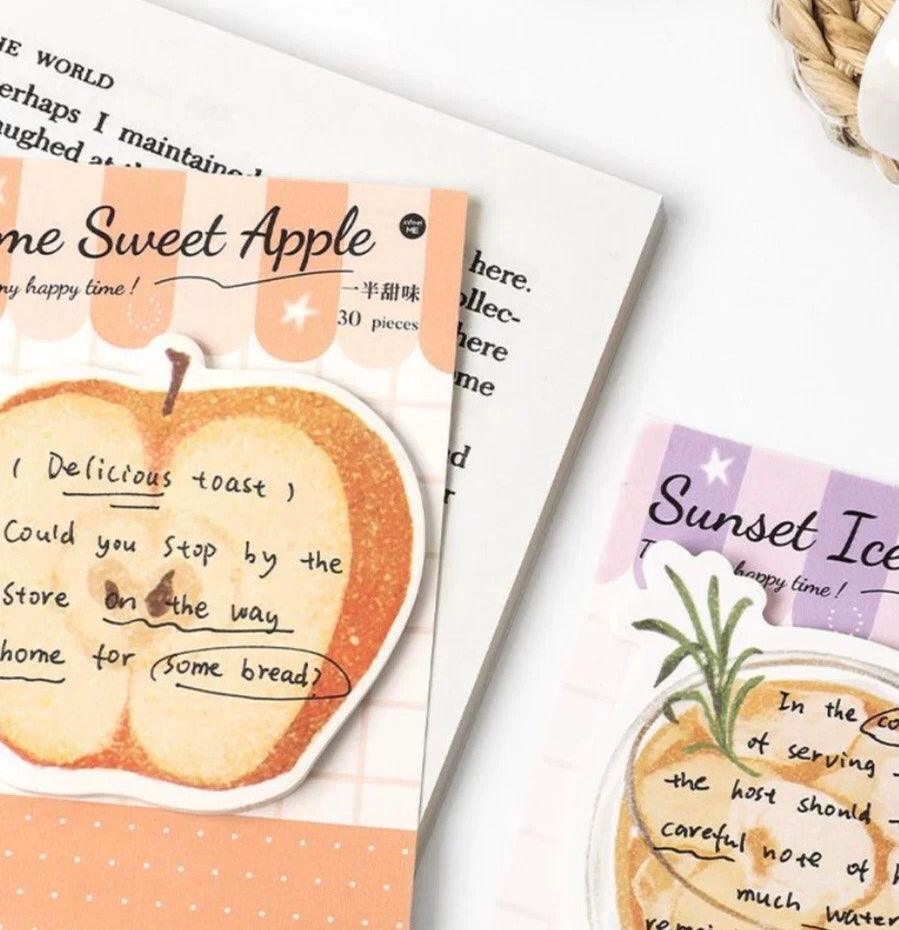 THE WORLD
perhaps I maintained
laughed at
here.
collec-
here
me Sweet Apple
my happy time!
一半甜味
30 pieces
( Delicious toast )
Could you stop by the
store on the way
home for some bread?
Sunset Ice
happy time!
In the
of serving
the host should
careful note of
much water